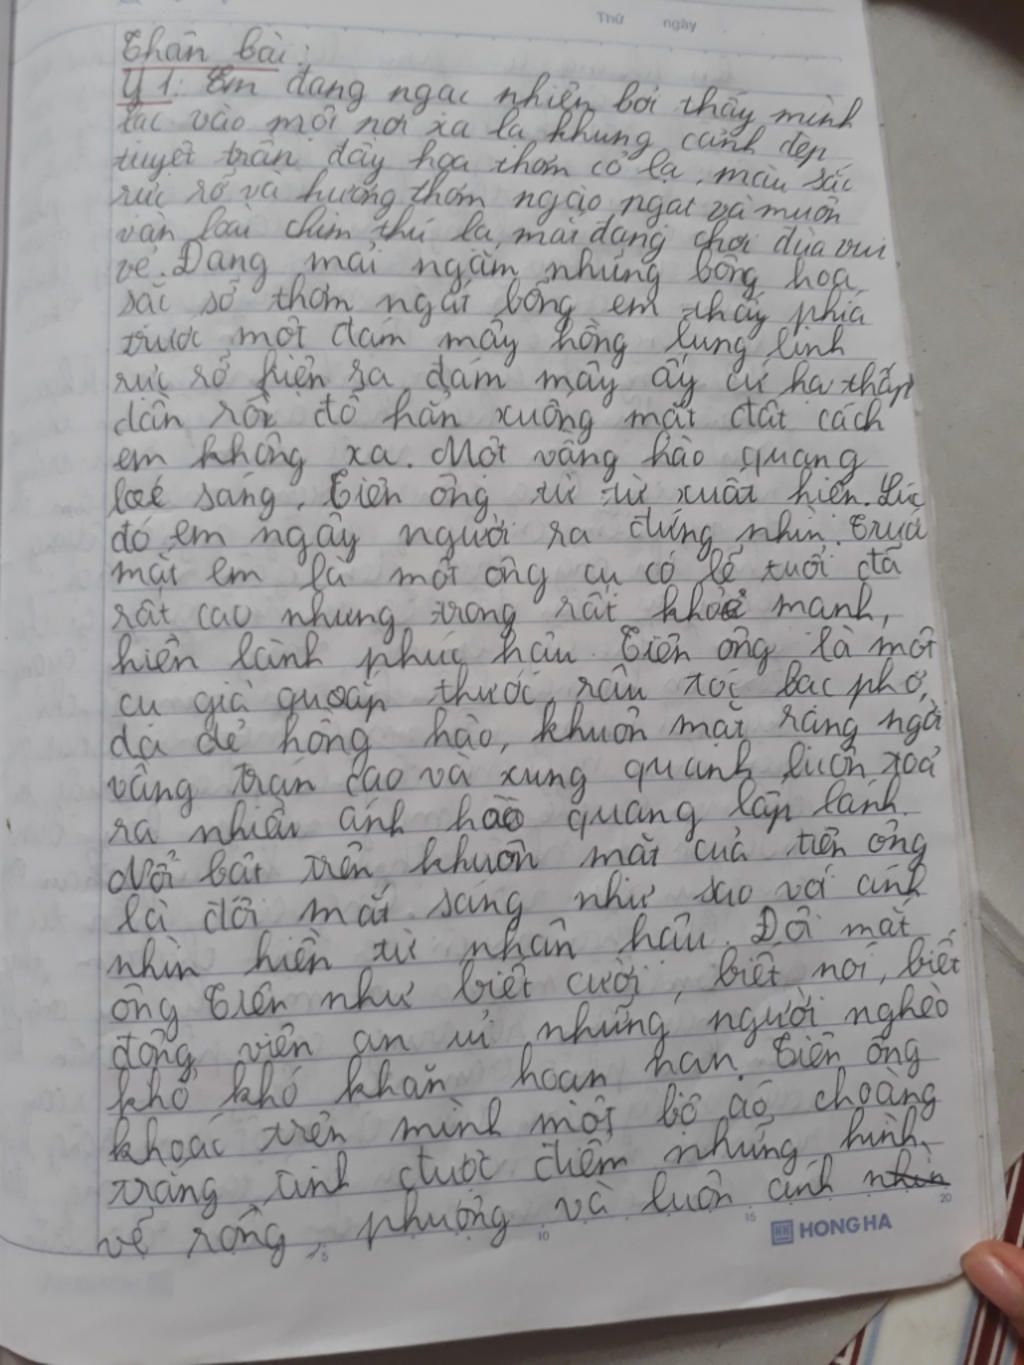 Thứ ngày
Thân bài:
Ý 1: Em đang ngạc nhiên bởi thấy mình
lạc vào một nơi xa lạ, khung cảnh đẹp
tuyệt trần đầy hoa thơm cỏ lạ, màu sắc
rực rỡ và hương thơm ngào ngạt và muôn
vàn loài chim thú lạ, mải đang chơi đùa vui
vẻ. Đang mải ngắm những bông hoa
sặc sỡ thơm ngát bỗng em thấy phía
trước một đám mây hồng lung linh
rực rỡ hiện ra, đám mây ấy cứ hạ thấp
dần rồi đỗ hẳn xuống mặt đất cách
em không xa. Một vầng hào quang
loé sáng, Tiên ông từ từ xuất hiện. Lúc
đó em ngây người ra đứng nhìn. Trước
mặt em là một ông cụ có lẽ tuổi đã
rất cao nhưng trong rất khoẻ mạnh,
hiền lành phúc hậu. Tiên ông là một
cụ già quoắp thước, râu tóc bạc phơ,
da dẻ hồng hào, khuôn mặt rạng ngời
vầng trán cao và xung quanh luôn toả
ra nhiều ánh hào quang lấp lánh.
Nổi bật trên khuôn mặt của tiên ông
là đôi mắt sáng như sao với ánh
nhìn hiền từ nhân hậu. Đôi mắt
ông Tiên như biết cười, biết nói, biết
động viên an ủi những người nghèo
khổ khó khăn hoạn nạn. Tiên ông
khoác trên mình một bộ áo choàng
trắng tinh được điểm những hình
vẽ rồng, phượng và luôn ánh nhìn
5 10 15 20
HONG HA